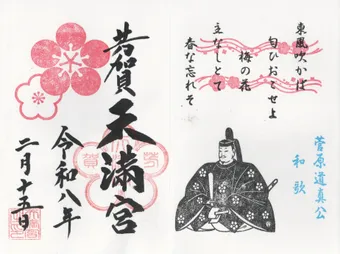 東風吹かば
匂ひおこせよ
梅の花
主なしとて
春な忘れそ
菅原道真公
和歌
芳賀天満宮
令和八年
二月十五日